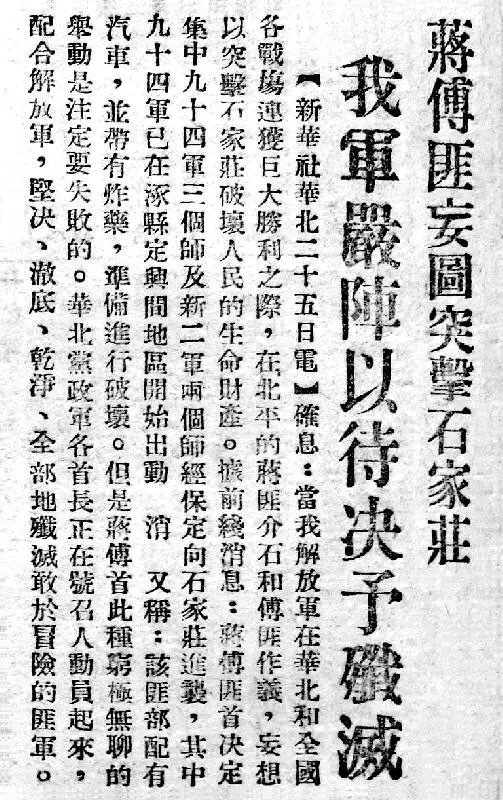 蔣傅匪妄圖突擊石家莊
我軍嚴陣以待决予殲滅
【新華社華北二十五日電】確息：當我解放軍在華北和全國
各戰場連獲巨大勝利之際，在北平的蔣匪介石和傅匪作義，妄想
以突擊石家莊破壞人民的生命財產。據前綫消息：蔣傅匪首決定
集中九十四軍三個師及新二軍兩個師經保定向石家莊進襲，其中
九十四軍已在涿縣定興間地區開始出動 消 又稱：該匪部配有
汽車，並帶有炸藥，準備進行破壞。但是蔣傅首此種窮極無聊的
舉動是注定要失敗的。華北黨政軍各首長正在號召人動員起來，
配合解放軍，堅决、澈底、乾淨、全部地殲滅敢於冒險的匪軍。